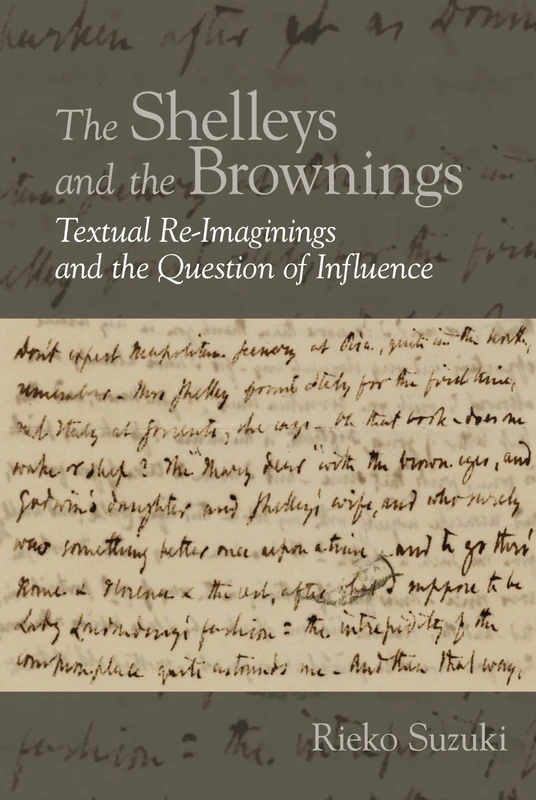 hearken after it as Donne
The Shelleys
and the Brownings
Textual Re-Imaginings
and the Question of Influence
Don't expect Neapolitan Scenery at Pisa, quite in the North,
remember. Mrs Shelley found Italy for the first time,
real Italy at Sorrento, she says. Oh that book - does one
wake or sleep? The "Mary dear" with the brown eyes, and
Godwin's daughter and Shelley's wife, and who surely
was something better once upon a time - and to go thro'
Rome & Florence & the rest, after what I suppose to be
Lady Londonderry's fashion: the intrepidity of the
commonplace quite astounds me. And then that way,
fashion: the intrepidity
Rieko Suzuki